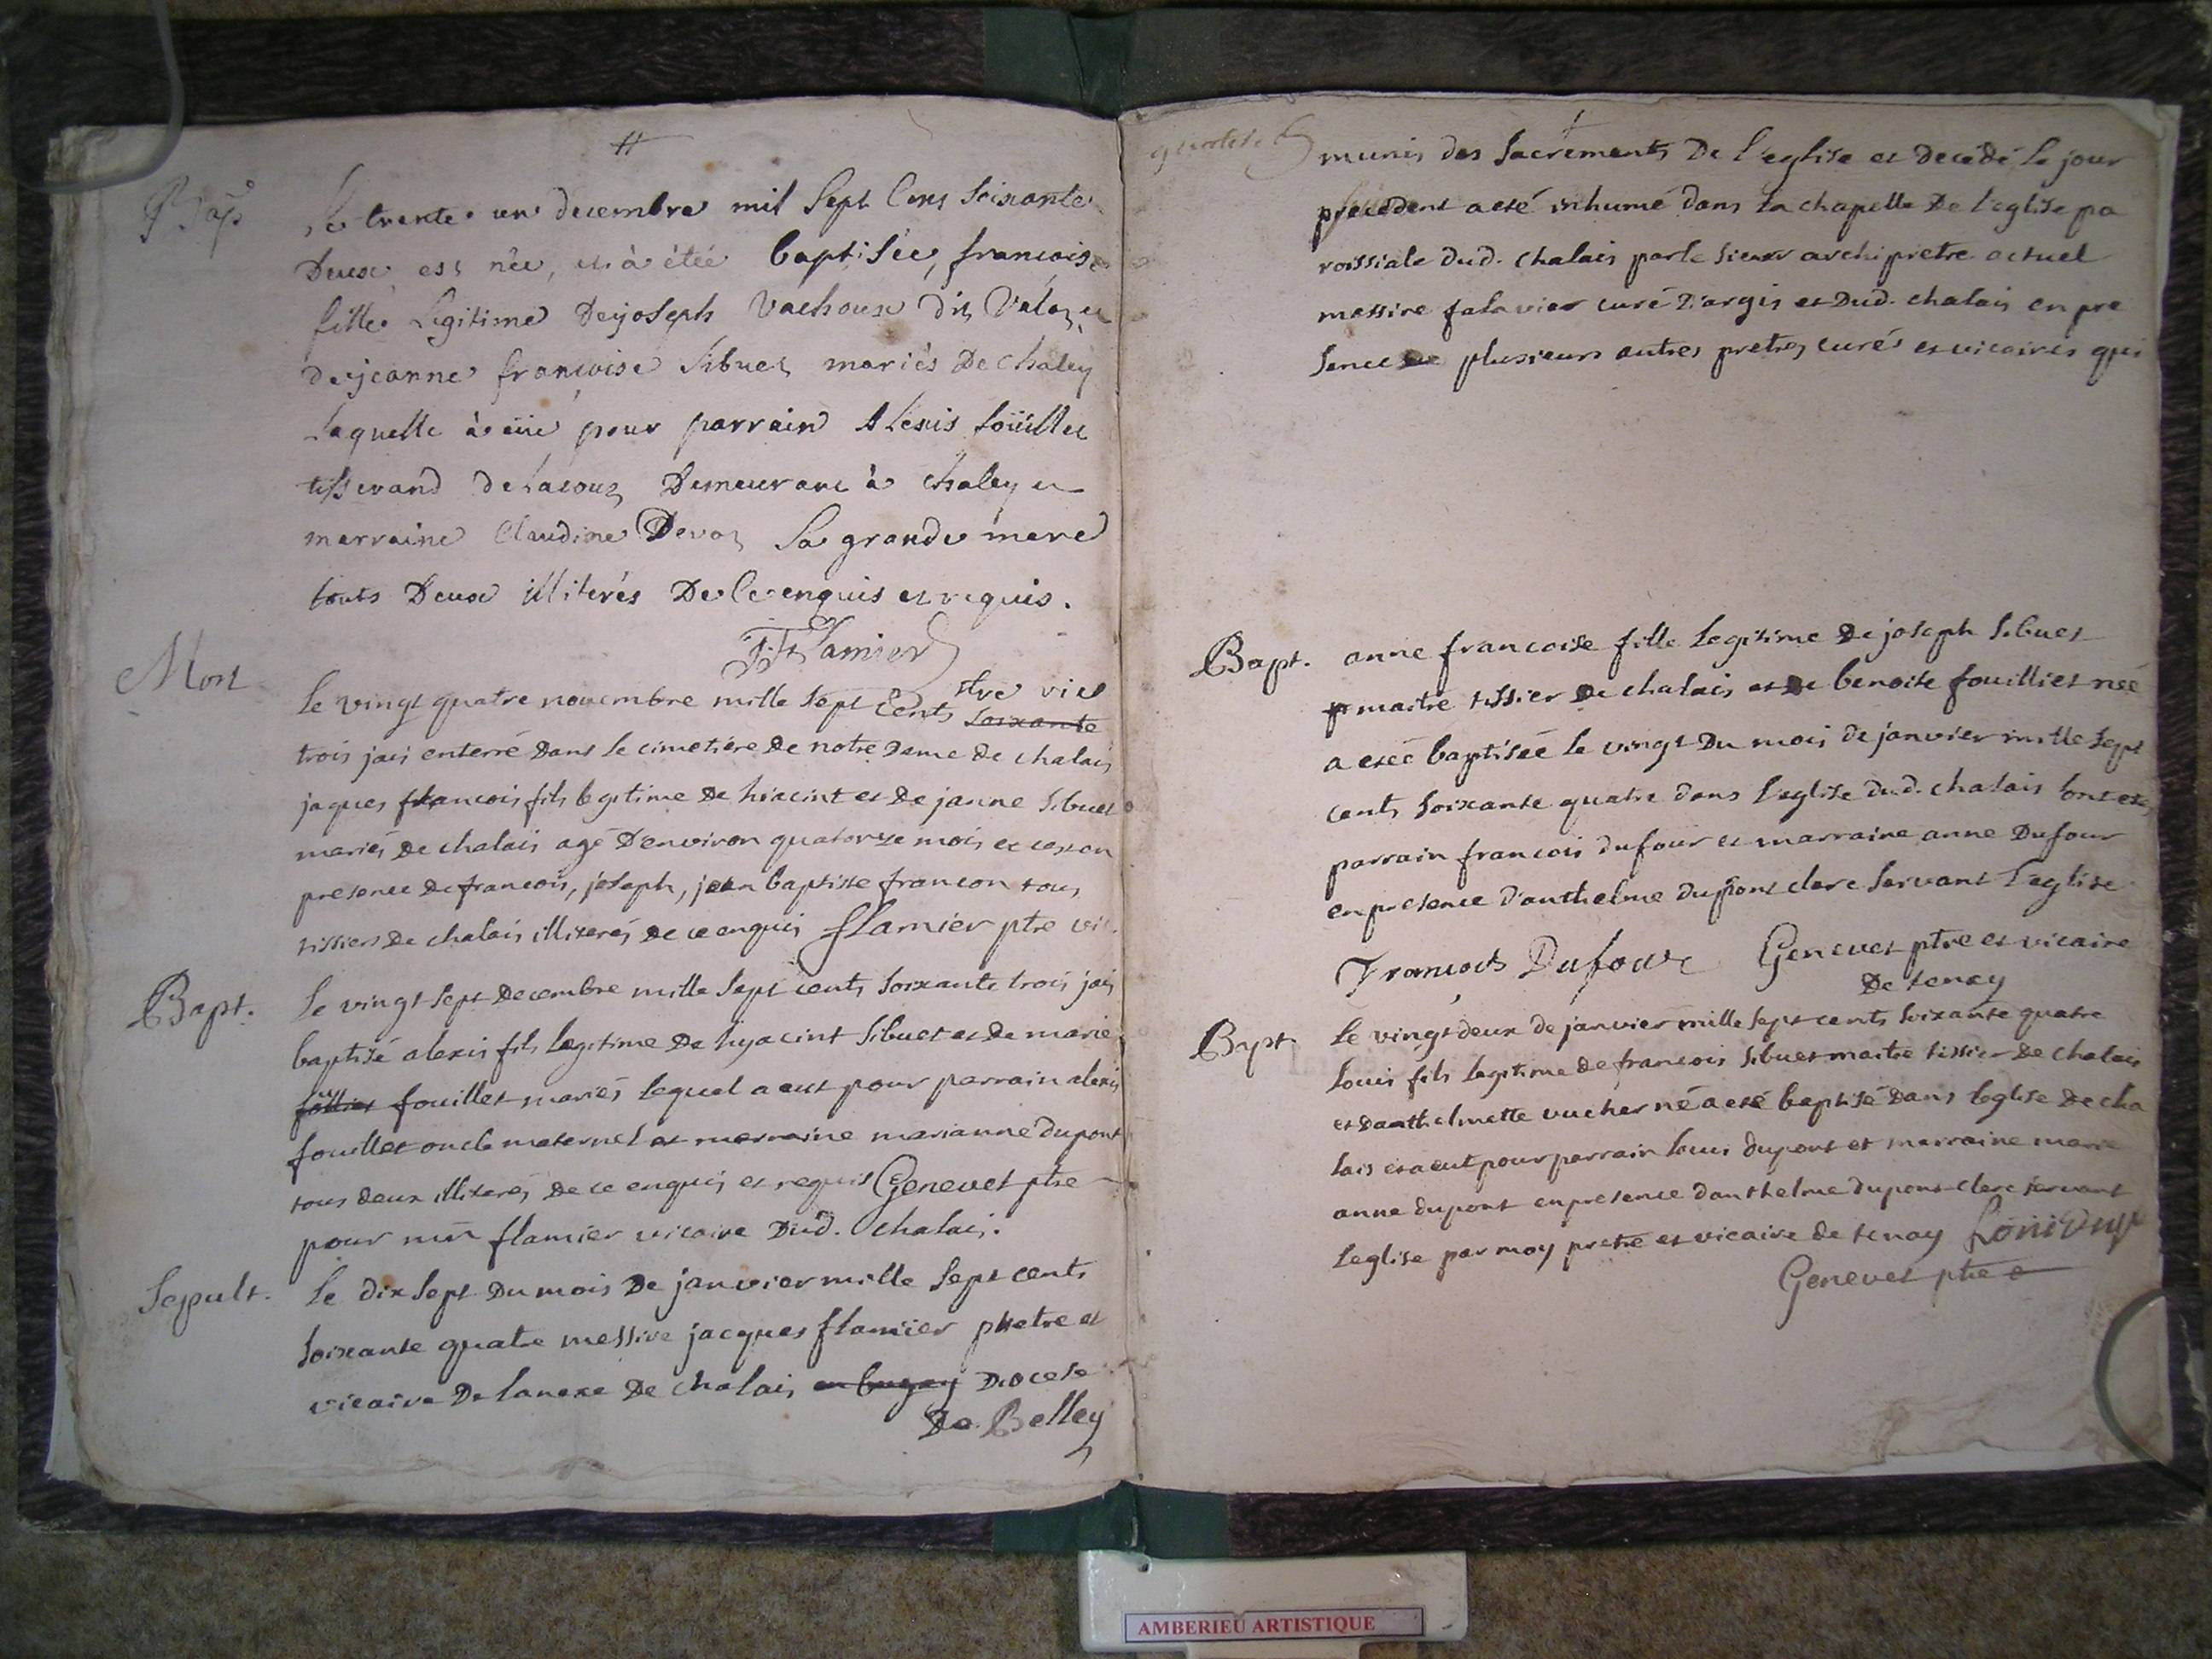 Bap.
Le trente un decembre mil Sept Cens Soixante
Deux est née, et à étée baptisée, francoise
fille Legitime De joseph Vachoux dit Valoz et
de jeanne françoise Sibuet mariés De chaley
Laquelle à eüe pour parrain Alexis foüillet
tisserand de Lacoux Demeurant à chaley et
marraine Claudine Devoz Sa grande mere
touts Deux illiterés De Ce enquis et requis.
Flamier
Mort
ptre vic
Le vingt quatre novembre mille sept Cents soixante
trois jais enterré Dans le cimetiére De notre Dame de chalais
jaques francois fils legitime De hiacint et De janne Sibuet
mariés De chalais agé D'environ quatorze mois et ce en
presence De francois, joseph, jean baptiste francon tous
tissiers De chalais illiterés De ce enquis flamier ptre vic.
Bapt.
Le vingt sept Decembre mille Sept cents soixante trois jais
baptisé alexis fils Legitime De hyacint Sibuet et De marie
fouillet mariés lequel a eut pour parrain alexis
fouillet oncle maternel et marraine marianne dupont
tous deux illiterés De ce enquis et requis Genevet ptre
pour mr flamier vicaire Dud. Chalais.
Sepult.
Le dix Sept Du mois De janvier mille Sept cents
soixante quatre messire jacques flamier pretre et
vicaire De lanexe De chalais en bugey Diocese
De Belley
munis des Sacrements De l'eglise et decedé le jour
precedent a eté inhumé dans La chapelle De l'eglise pa
roissiale dud. chalais par le sieur archipretre actuel
messire falavier curé D'argis et Dud. chalais en pre
sence de plusieurs autres pretres curés et vicaires qui
Bapt.
anne francoise fille Legitime De joseph Sibuet
maitre tissier De chalais et De benoite fouilliet née
a eteé baptiseé le vingt Du mois de janvier mille sept
cents soixante quatre dans l'eglise dud. chalais ont eté
parrain francois dufour et marraine anne Dufour
en presence d'anthelme dupont clerc servant l'eglise
François Dufour Genevet ptre et vicaire
De tenay
Bapt.
Le vingt deux de janvier mille sept cents soixante quatre
Louis fils Legitime de francois Sibuet maitre tissier De chalais
et Danthelmette vucher né a eté baptisé Dans leglise De cha
lais et a eut pour parrain Louis dupont et marraine marie
anne dupont en presence danthelme dupont clerc servant
Leglise par moy pretre et vicaire de tenay
Genevet ptre
AMBERIEU ARTISTIQUE